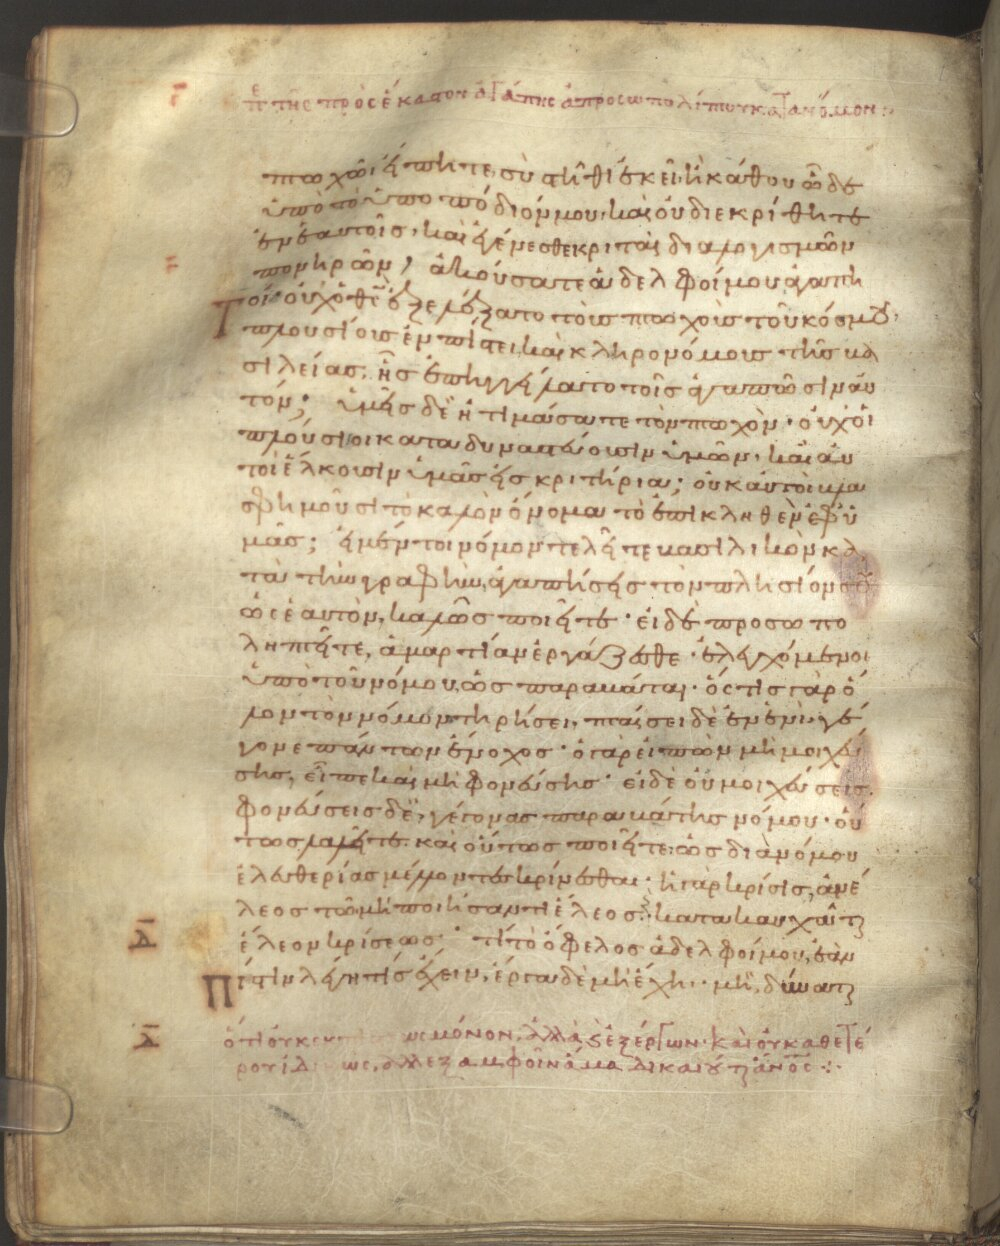 π͞ε τῆς πρὸς ἕκαστον ἀγάπης ἀπροσωπολίπτου κατὰ νόμον :
πτωχῶι εἴπητε, σὺ στῆθι ἐκεῖ, ἢ κάθου ὧδε
ὑπὸ τὸ ὑποπόδιόν μου, καὶ οὐ διεκρίθητε
ἐν ἑαυτοῖς, καὶ ἐγένεσθε κριταὶ διαλογισμῶν
πονηρῶν, ἀκούσατε ἀδελφοί μου ἀγαπη
τοί· οὐχ ὁ θ͞ς ἐξελέξατο τοὺς πτωχοὺς τοῦ κόσμου,
πλουσίους ἐν πίστει, καὶ κληρονόμους τῆς βα
σιλείας, ἧς ἐπηγγείλατο τοῖς ἀγαπῶσιν αὐ
τόν; ὑμεῖς δὲ ἠτιμάσατε τὸν πτωχὸν· οὐχ οἱ
πλούσιοι καταδυναστεύουσιν ὑμῶν, καὶ αὐ
τοὶ ἕλκουσιν ὑμᾶς εἰς κριτήρια; οὐκ αὐτοὶ βλα
σφημοῦσι τὸ καλὸν ὄνομα τὸ ἐπικληθὲν ἐφ' ὑ
μᾶς; εἰ μέντοι νόμον τελεῖτε βασιλικὸν κα
τὰ τὴν γραφὴν, ἀγαπήσεις τὸν πλησίον σου
ὡς ἑαυτὸν, καλῶς ποιεῖτε· εἰ δὲ προσωπο
ληπτεῖτε, ἁμαρτίαν ἐργάζεσθε· ἐλεγχόμενοι
ὑπὸ τοῦ νόμου, ὡς παραβάται· ὅστις γὰρ ὅ
λον τὸν νόμον τηρήσει, πταίσει δὲ ἐν ἑνὶ, γέ
γονε πάντων ἔνοχος· ὁ γὰρ εἰπὼν μὴ μοιχεύ
σης, εἶπε καὶ μὴ φονεύσης· εἰ δὲ οὐ μοιχεύσεις,
φονεύσεις δὲ, γέγονας παραβάτης νόμου· οὕ
τως λαλεῖτε καὶ οὕτως ποιεῖτε, ὡς διὰ νόμου
ἐλευθερίας μέλλοντες κρίνεσθαι· ἡ γὰρ κρίσις, ἀνέ
λεος τῶ μὴ ποιήσαντι ἔλεος· κατακαυχᾶται
ἔλεον κρίσεως· τί τὸ ὄφελος ἀδελφοί μου, ἐὰν
πίστιν λέγη τίς ἔχειν, ἔργα δὲ μὴ ἔχη· μὴ δύναται
ὅτι οὐκ μόνον, ἀλλὰ καὶ ἐξ ἔργων· καὶ οὐ καθ' ἑτέ
ρου ἰδι ως, ἀλλ' ἐξ ἀμφοῖν ἅμα δικαιοῦται ἄν͞ος :·